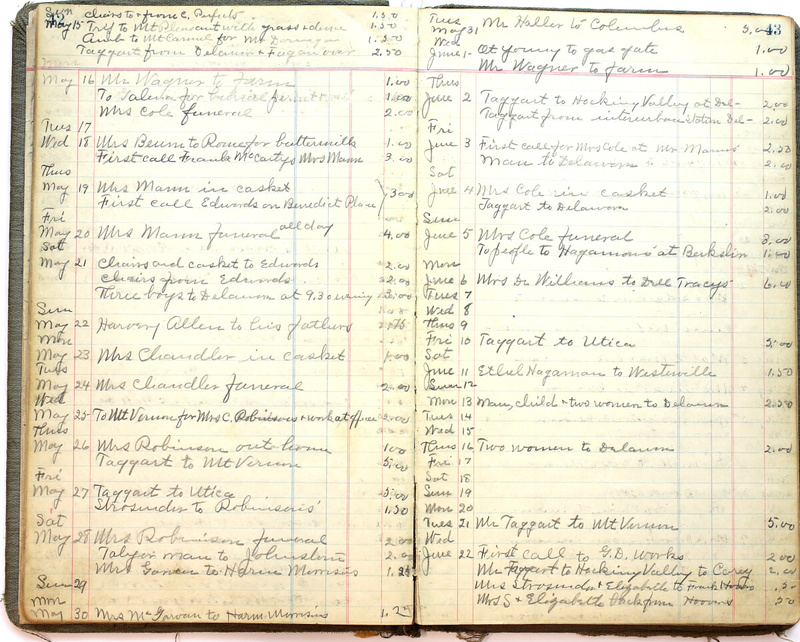 42
Sun chairs to & from C. Perfects 1.50
May 15 Trip to Mt Pleasant with grass & dense 1.50
Amb to McCannel for Mr 1.50
Taggart from Delaware & Fagan over 2.50
Mon
May 16 Mr Wagner to farm 1.00
To Galena for burial permit 1.00
Mrs Cole funeral 2.00
Tues 17
Wed 18 Mrs Beum to Rome for buttermilk 1.00
First call Frank McCartys Mrs Mann 3.00
Thus
May 19 Mrs Mann in casket
First call Edwards on Benedict Place } 3.00
Fri
May 20 Mrs Mann funeral all day 4.00
Sat
May 21 Chairs and casket to Edwards 2.00
chairs from Edwards 2.00
Three boys to Delaware at 9.30 evening 3.00
Sun
May 22 Harvey Allen to his fathers 2.75
Mon
May 23 Mrs Chandler in casket 1.00
Tues
May 24 Mrs Chandler funeral 2.00
Wed
May 25 To Mt Vernon for Mrs C. Robinsons & work at office 2.00
Thus
May 26 Mrs Robinson out home 1.00
Taggart to Mt Vernon 5.00
Fri
May 27 Taggart to Utica 5.00
Strosnider to Robinsons' 1.50
Sat
May 28 Mrs Robinson funeral 2.00
Taylor man to Johnstown 2.00
Mrs to Harm Morrisons 1.25
Sun 29
Mon
May 30 Mrs McGowan to Harm Morrisons 1.25
43
Tues
May 31 Mr Haller to Columbus 5.00
Wed
June 1 - Ot young to gas gate 1.00
Mr Wagner to farm 1.00
Thus
June 2 Taggart to Hocking Valley at Del- 2.00
Taggart from interurban station Del- 2.00
Fri
June 3 First call for Mrs Cole at Mr Manns' 2.50
Man to Delaware 2.00
Sat
June 4 Mrs Cole in casket 1.00
Taggart to Delaware 2.00
Sun
June 5 Mrs Cole funeral 3.00
To people to Hagamons' at Berkshire 1.00
Mon
June 6 Mrs Dr Williams to Dell Tracys' 6.00
Tues 7
Wed 8
Thus 9
Fri 10 Taggart to Utica 5.00
Sat
June 11 Ethel Hagaman to Westerville 1.50
Sun 12
Mon 13 Man, child & two women to Delaware 2.50
Tues 14
Wed 15
Thus 16 Two women to Delaware 2.00
Fri 17
Sat 18
Sun 19
Mon 20
Tues 21 Mr Taggart to Mt Vernon 5.00
Wed
June 22 First call to G.D. Works 2.00
Mr Taggart to Hocking Valley to Carey 2.00
Mrs Strosnider & Elizabeth to Frank Hoovers .50
Mrs S & Elizabeth back from Hoovers .50